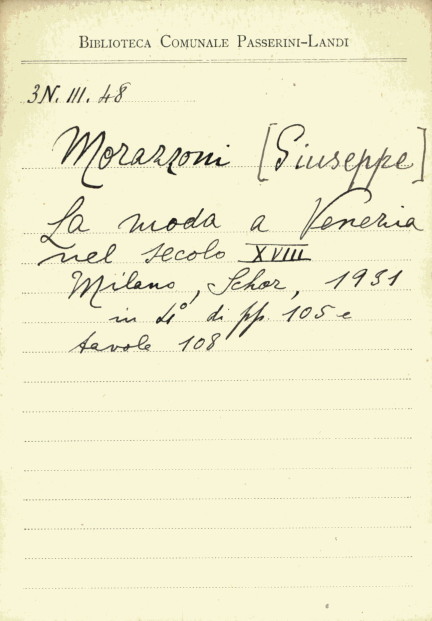 BIBLIOTECA COMUNALE PASSERINI-LANDI
3N. III. 48
Morazzoni [Giuseppe]
La moda a Venezia
nel secolo XVIII
Milano, Schor, 1931
in 4° di pp. 105 e
tavole 108